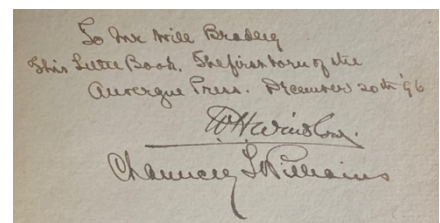 To Mr Will Bradley
This Little Book. The first born of the
Auvergne Press. December 20th '96
W H Winslow.
Chauncey L Williams